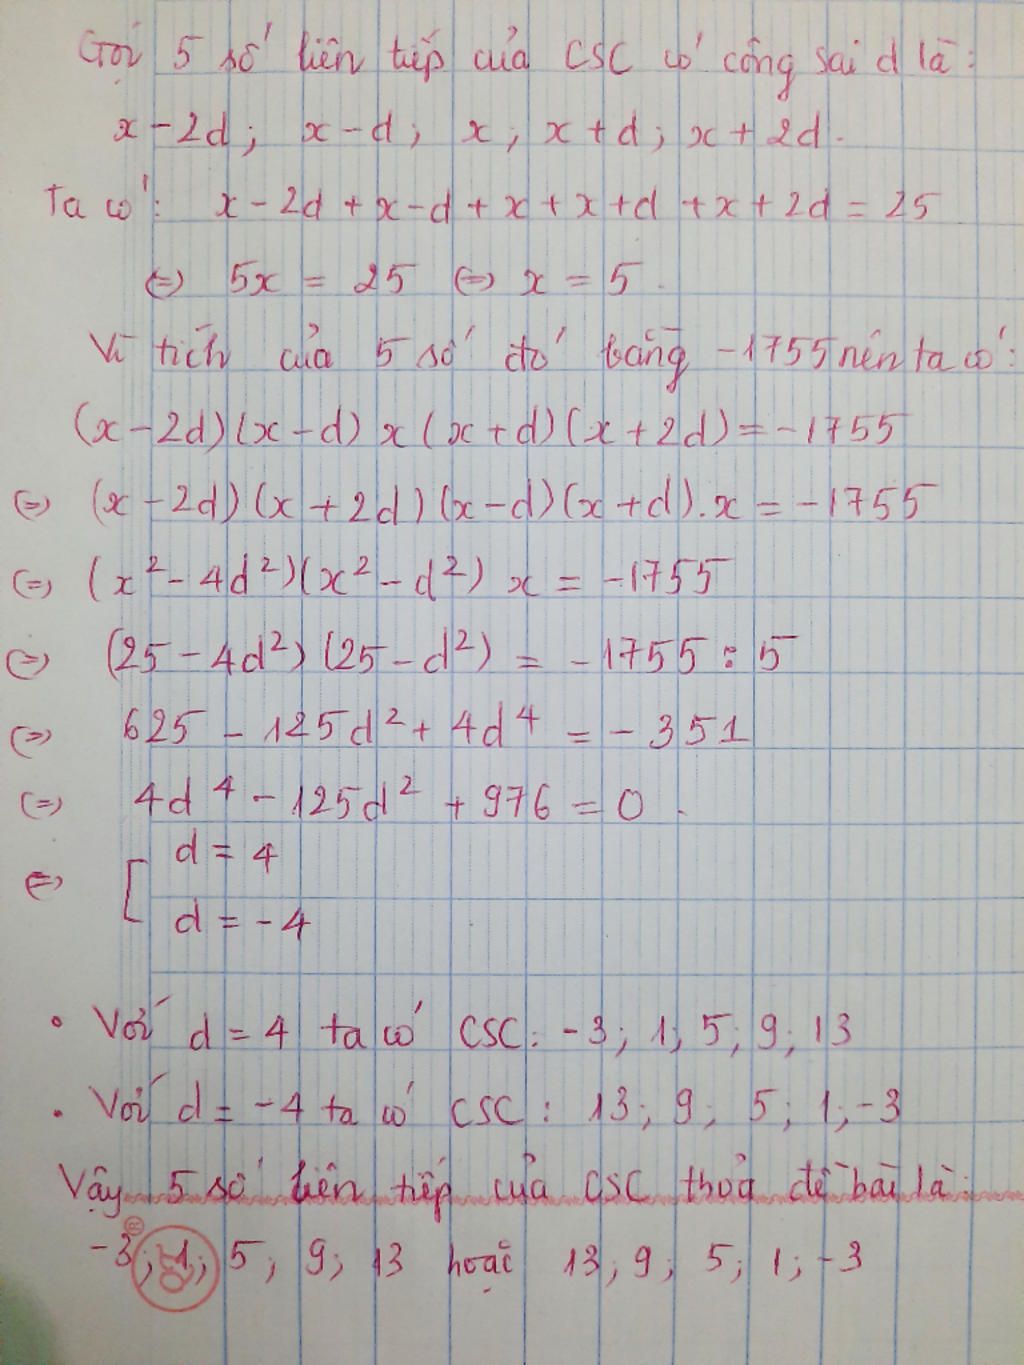 Gọi 5 số liên tiếp của CSC có công sai d là:
x - 2d; x - d; x; x + d; x + 2d.
Ta có: x - 2d + x - d + x + x + d + x + 2d = 25
⇔ 5x = 25 ⇔ x = 5.
Vì tích của 5 số đó bằng -1755 nên ta có:
(x - 2d)(x - d) x (x + d)(x + 2d) = -1755
⇔ (x - 2d)(x + 2d)(x - d)(x + d).x = -1755
⇔ (x² - 4d²)(x² - d²) x = -1755
⇔ (25 - 4d²)(25 - d²) = -1755 : 5
⇔ 625 - 125d² + 4d⁴ = -351
⇔ 4d⁴ - 125d² + 976 = 0.
⇔ [ d = 4
d = -4
• Với d = 4 ta có CSC: -3; 1; 5; 9; 13
• Với d = -4 ta có CSC: 13; 9; 5; 1; -3
Vậy 5 số liên tiếp của CSC thỏa đề bài là:
-3; 1; 5; 9; 13 hoặc 13; 9; 5; 1; -3